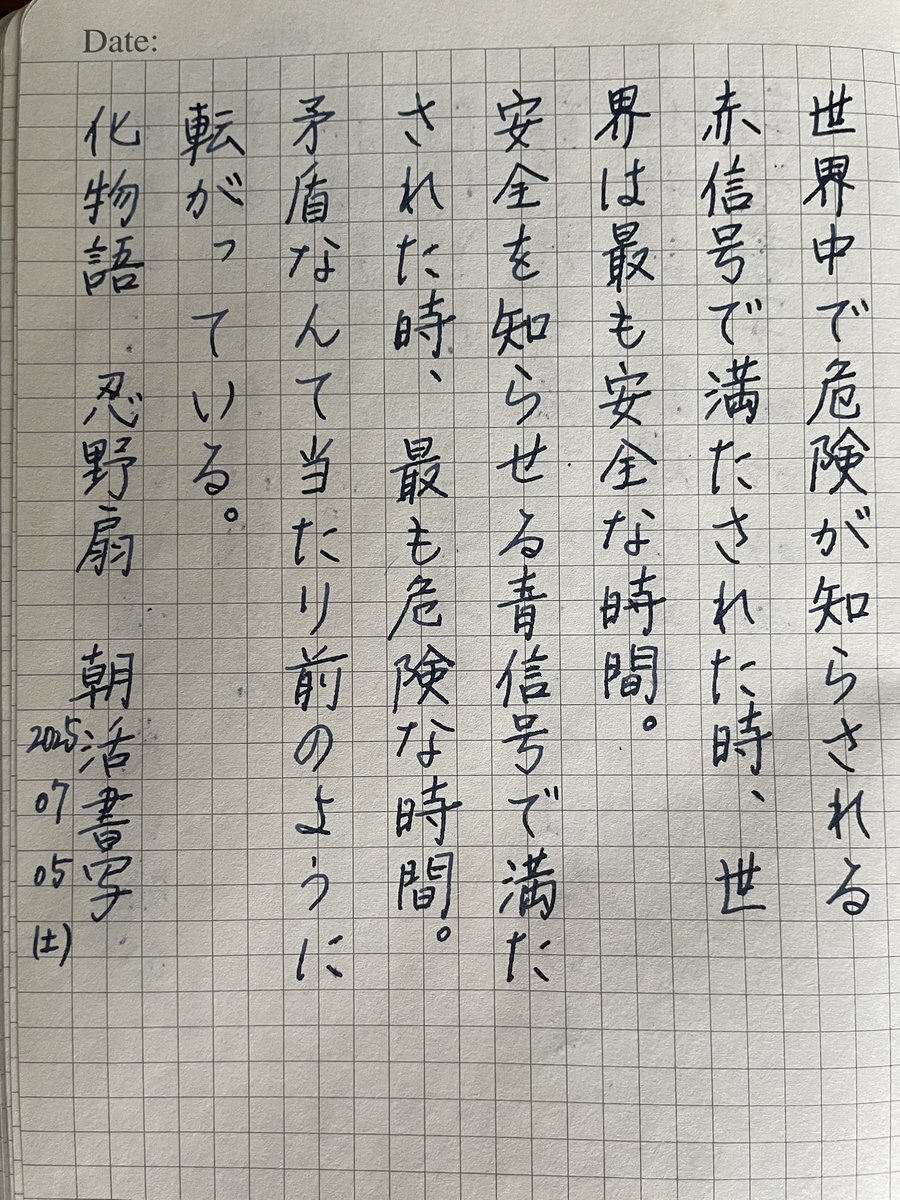 Date:
世界中で危険が知らされる
赤信号で満たされた時、世
界は最も安全な時間。
安全を知らせる青信号で満た
された時、最も危険な時間。
矛盾なんて当たり前のように
転がっている。
化物語 忍野扇 朝活書写
2025
07
05
(土)